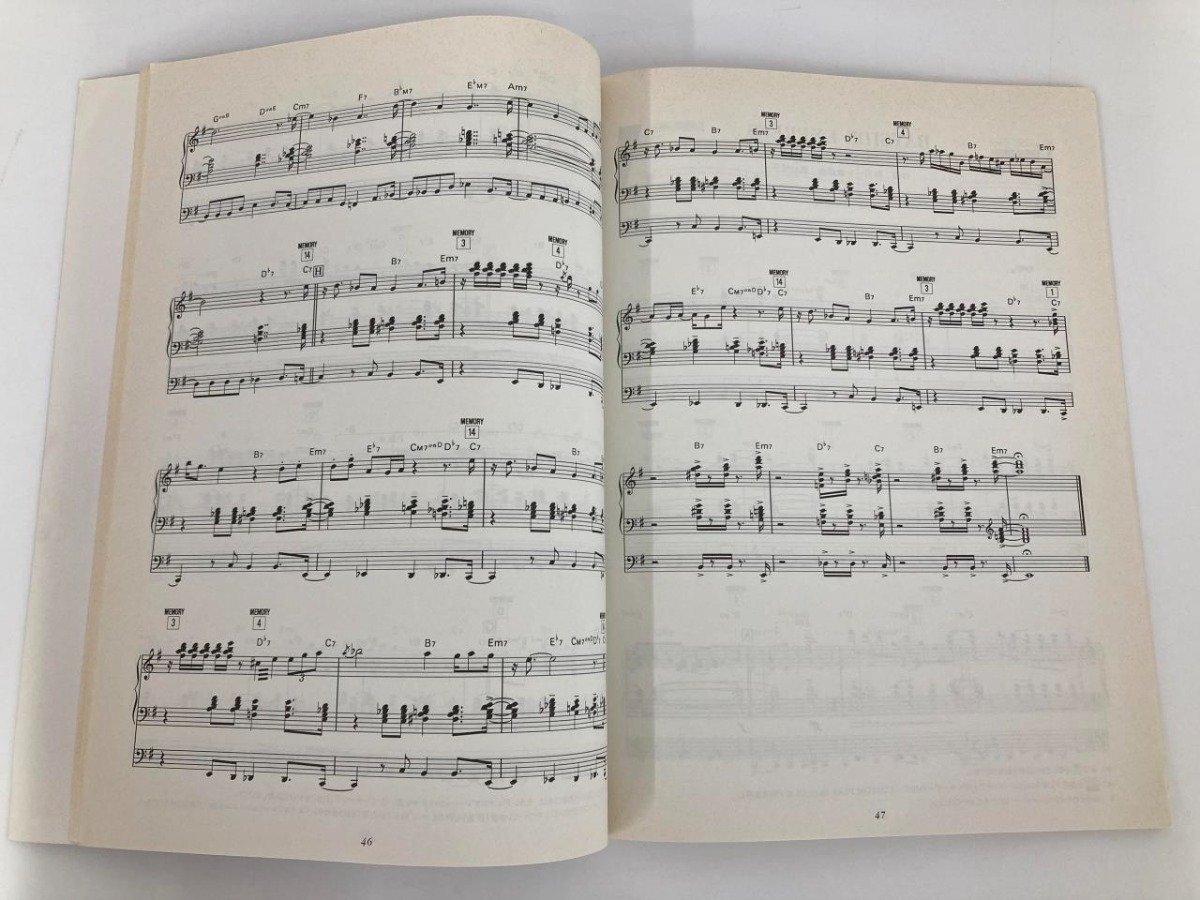 GonB DonE Cm7 F7 B♭M7 E♭M7 Am7
MEMORY 14
MEMORY 3
MEMORY 4
D♭7 C7 H B7 Em7 D♭7
MEMORY 14
B7 Em7 E♭7 CM7onD D♭7 C7 B7
MEMORY 3
MEMORY 4
D♭7 C7 B7 Em7 E♭7 CM7onD D♭7
3
46
MEMORY 3
MEMORY 4
C7 B7 Em7 D♭7 C7 B7 Em7
MEMORY 14
MEMORY 3
MEMORY 1
E♭7 CM7onD D♭7 C7 B7 Em7 D♭7 C7
B7 Em7 D♭7 C7 B7 Em7
47